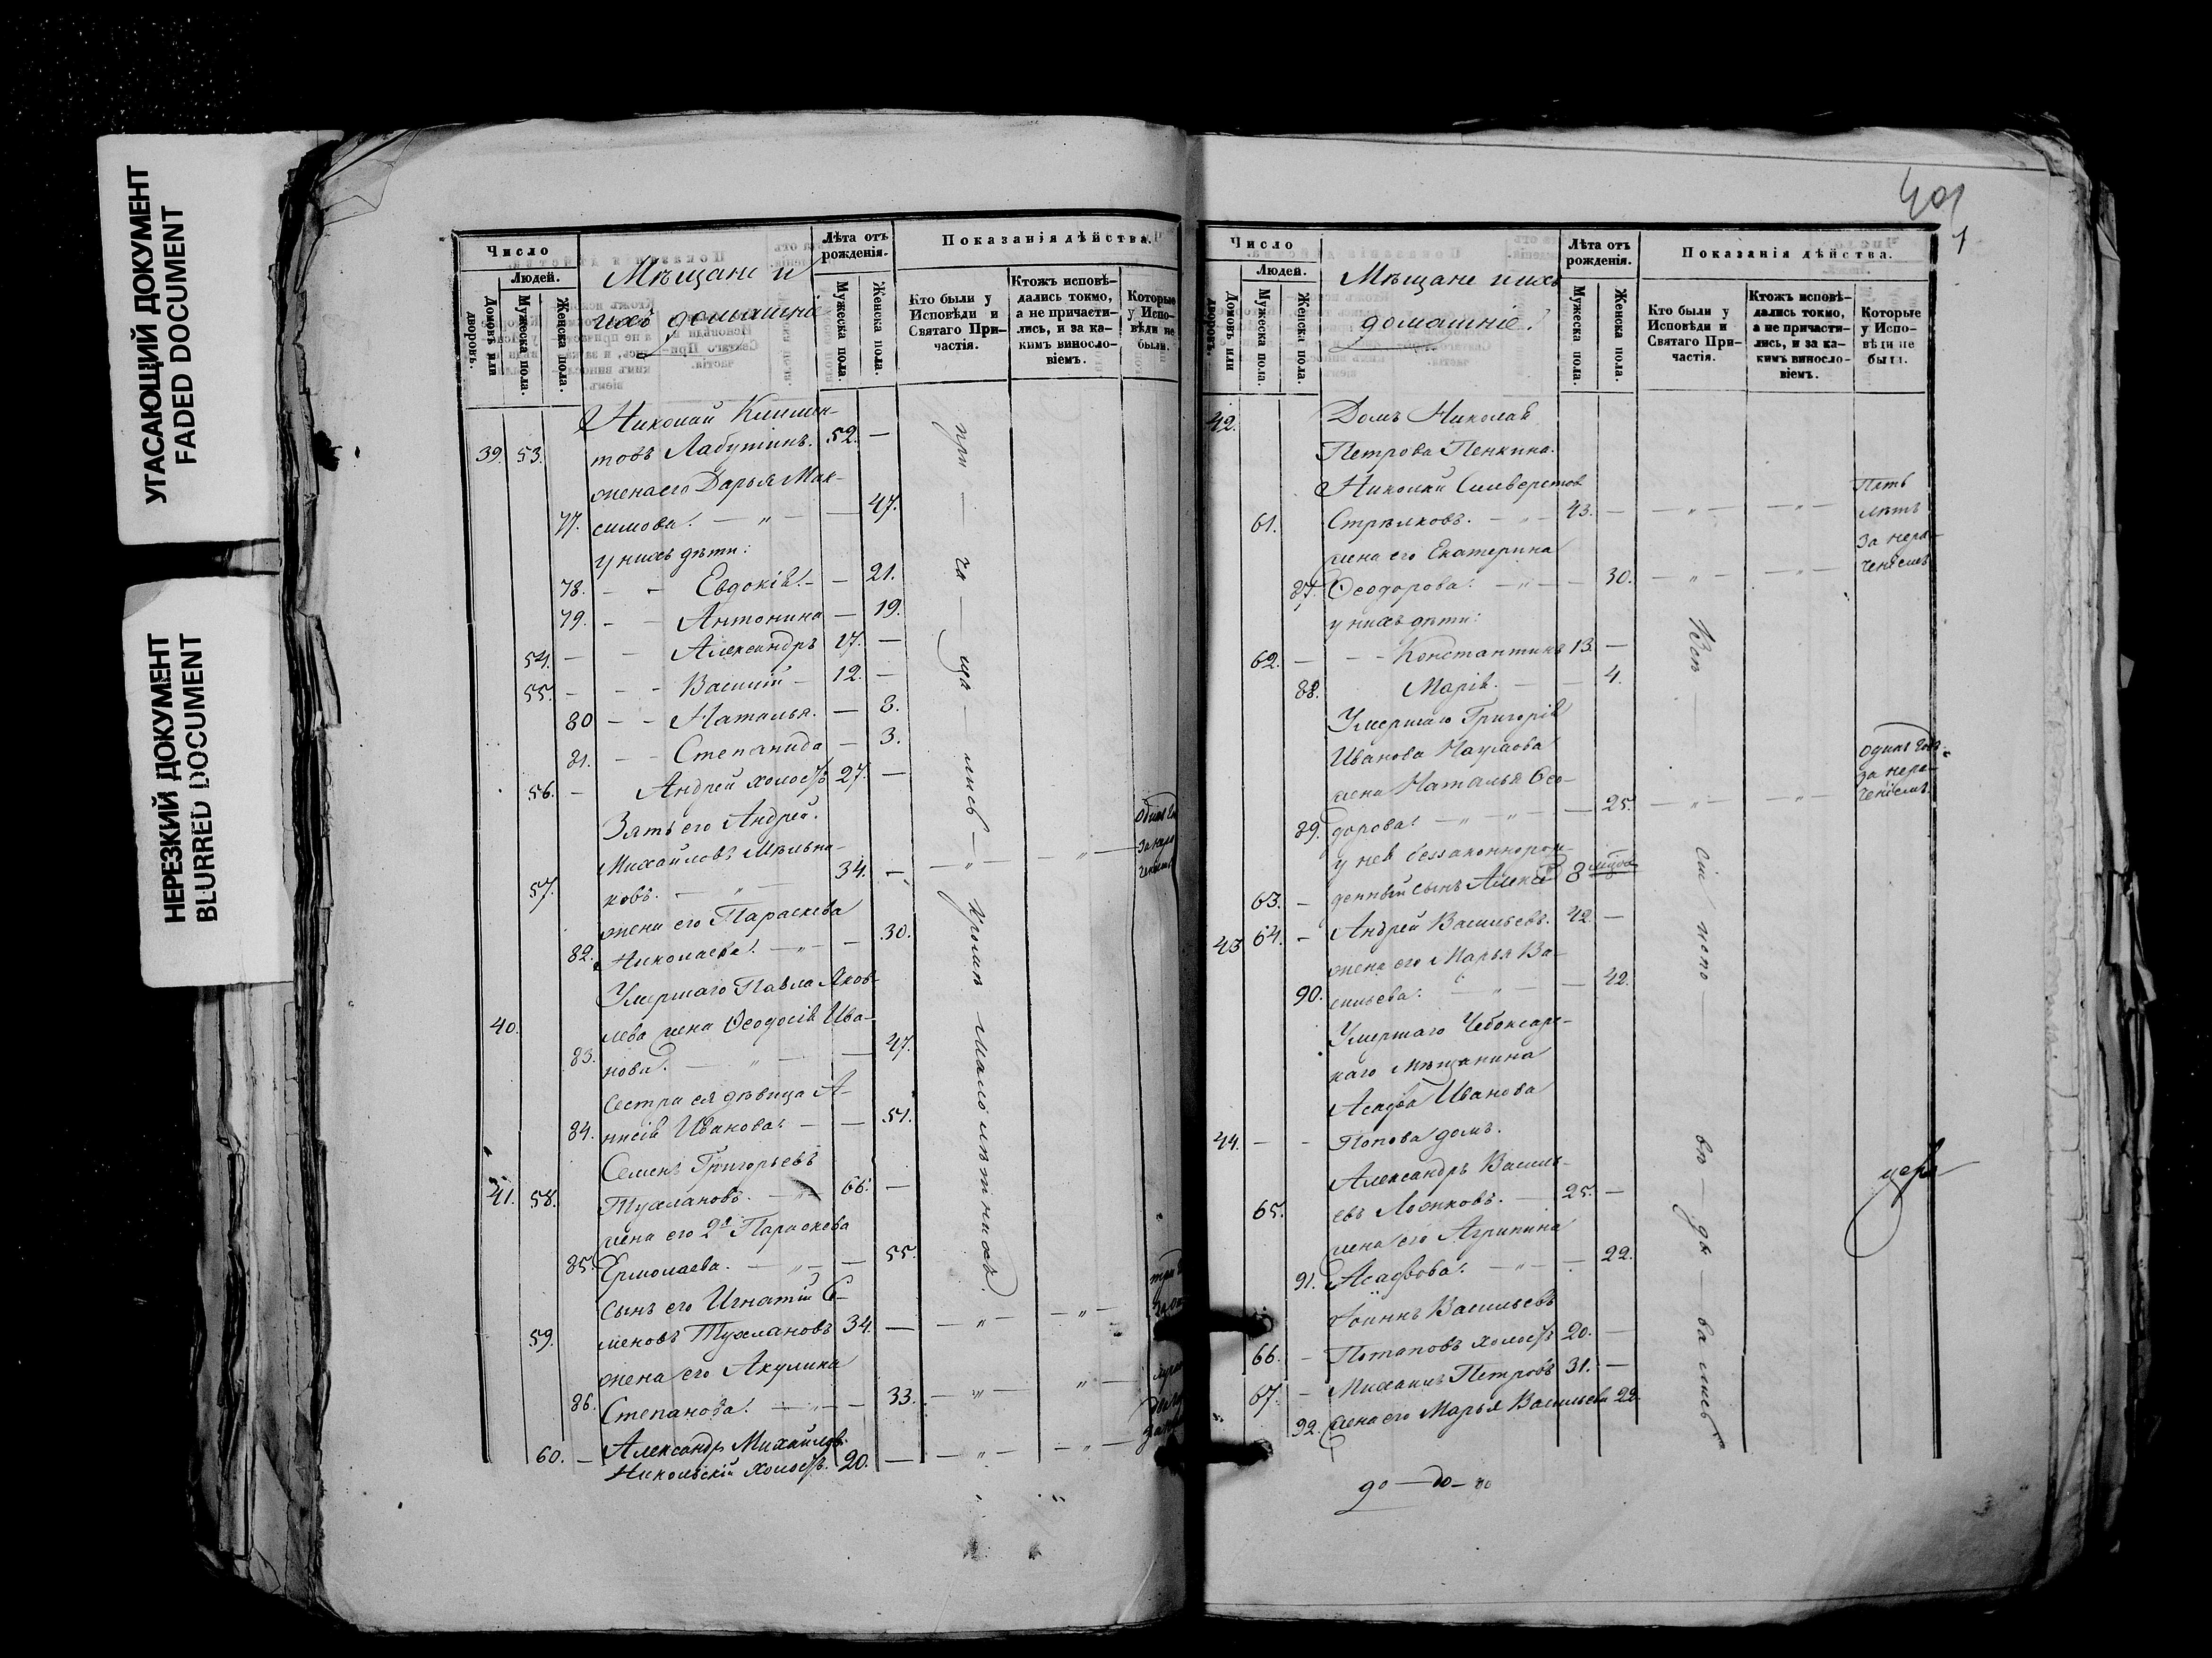 УГАСАЮЩИЙ ДОКУМЕНТ
FADED DOCUMENT
НЕРЕЗКИЙ ДОКУМЕНТ
BLURRED DOCUMENT
Число
Людей.
Домовъ или дворовъ.
Мужеска пола.
Женска пола.
Мѣщане и
ихъ домашніе
Лѣта отъ рожденія.
Мужеска пола.
Женска пола.
Показанія дѣйства.
Кто были у Исповѣди и Святаго Причастія.
Ктожъ исповѣдались токмо, а не причастились, и за какимъ винословіемъ.
Которые у Исповѣди не были.
Николай Климен-
39. 53. товъ Лабутинъ. 52. —
жена его Дарья Мак-
77. симова. — „ — — 47.
у нихъ дѣти:
78. — - Евдокія. — — 21.
79. - - Антонина — 19.
54. — - Александръ 17. —
55. — - - Василій — 12. —
80 — - Наталья. — 8.
81. — - Степанида — 3.
56. — Андрей холостъ 27. —
Зять его Андрей
Михайловъ Мельни-
57. ковъ. — „ — 34. — — „ — — „ —
жена его Параскева
82. Николаева. — „ — — 30.
Умершаго Павла Яков-
40. лева жена Ѳеодосія Ива-
83. нова. — „ — — 47.
Сестра ея дѣвица А-
84. нисія Иванова. — — 51.
Семенъ Григорьевъ
41. 58. Тухлановъ. — „ — 66. —
жена его 2я Параскева
85. Ермолаева. — „ — — 55.
Сынъ его Игнатій Се-
59. меновъ Тухлановъ 34. — — „ — — „ —
жена его Акулина
86. Степанова. — „ — — 33. — „ — „ —
60. — Александръ Михайловъ
Никольскій холостъ. 20. — — „ — — „ —
при — ча — ща — лись — кромѣ малолѣтнихъ.
401
1
Число
Людей.
Домовъ или дворовъ.
Мужеска пола.
Женска пола.
Мѣщане и ихъ
домашніе.
Лѣта отъ рожденія.
Мужеска пола.
Женска пола.
Показанія дѣйства.
Кто были у Исповѣди и Святаго Причастія.
Ктожъ исповѣдались токмо, а не причастились, и за какимъ винословіемъ.
Которые у Исповѣди не были.
42. Домъ Николая
Петрова Пенкина.
Николай Сильверстов
61. Стрѣлковъ. — „ — 43. — — „ — — „ — Пять лѣтъ
жена его Екатерина за нера-
87. Ѳеодорова. — „ — — 30. — „ — — „ — ченіемъ
у нихъ дѣти:
62. — - - Константинъ 13. —
88. Марія. — — 4.
Умершаго Григорія
Ивановa Наумова одинъ годъ
жена Наталья Ѳео- за нера-
89. дорова. — „ — „ — — 25. — „ — — „ — ченіемъ.
у нея беззаконнорож-
63. — денный сынъ Алексѣй 8 мѣсяц
43 64. — Андрей Васильевъ. 42 —
жена его Марья Ва-
90. сильева. — „ — — 42.
Умершаго Чебоксарс-
каго мѣщанина
Асафа Иванова
44. — - Попова домъ.
Александръ Василь-
65. евъ Ложковъ. — 25. —
жена его Агрипина
91. Асафова. — „ — - 22.
Іоаннъ Васильевъ
66. — Потаповъ холостъ 20. —
67. — Михаилъ Петровъ 31. —
92. жена его Марья Васильева 22.
Всѣ — сіи испо — вѣ — ды — вались
церк